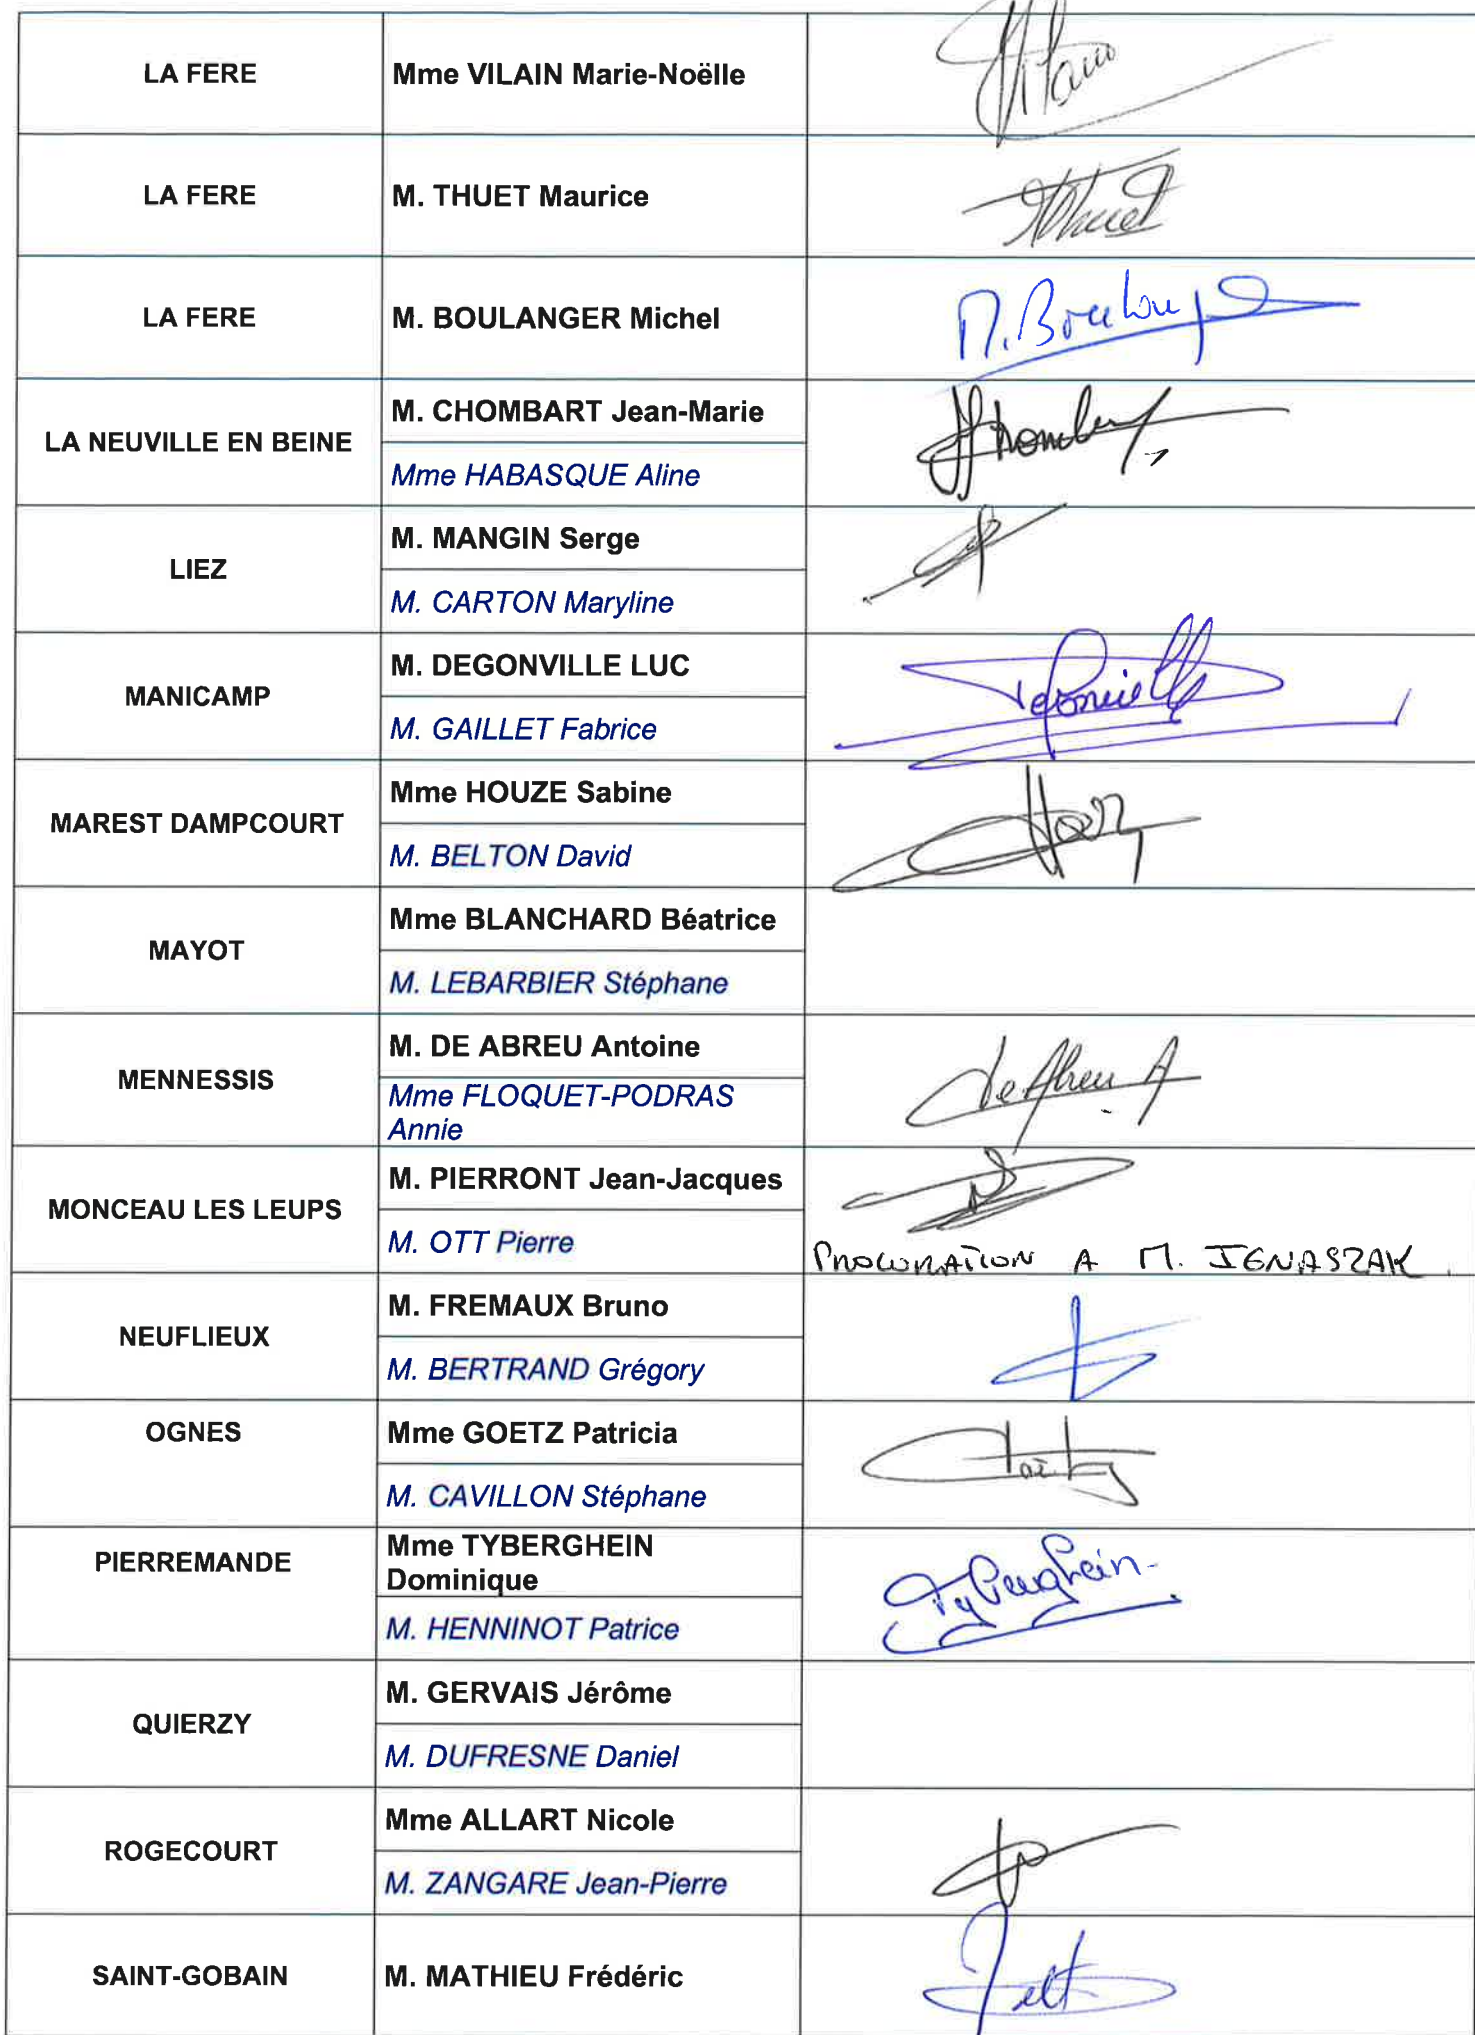 LA FERE
Mme VILAIN Marie-Noëlle
LA FERE
M. THUET Maurice
Thuet
LA FERE
M. BOULANGER Michel
LA NEUVILLE EN BEINE
M. CHOMBART Jean-Marie
Mme HABASQUE Aline
LIEZ
M. MANGIN Serge
M. CARTON Maryline
MANICAMP
M. DEGONVILLE LUC
M. GAILLET Fabrice
MAREST DAMPCOURT
Mme HOUZE Sabine
M. BELTON David
MAYOT
Mme BLANCHARD Béatrice
M. LEBARBIER Stéphane
MENNESSIS
M. DE ABREU Antoine
Mme FLOQUET-PODRAS
Annie
De Abreu A
MONCEAU LES LEUPS
M. PIERRONT Jean-Jacques
M. OTT Pierre
PROCURATION A M. IGNASZAK.
NEUFLIEUX
M. FREMAUX Bruno
M. BERTRAND Grégory
OGNES
Mme GOETZ Patricia
M. CAVILLON Stéphane
PIERREMANDE
Mme TYBERGHEIN
Dominique
M. HENNINOT Patrice
Tyberghein
QUIERZY
M. GERVAIS Jérôme
M. DUFRESNE Daniel
ROGECOURT
Mme ALLART Nicole
M. ZANGARE Jean-Pierre
SAINT-GOBAIN
M. MATHIEU Frédéric